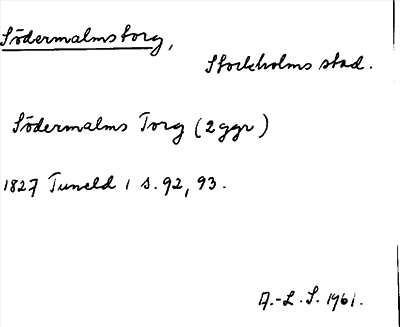 Södermalmstorg,
Stockholms stad.
Södermalms Torg (2 ggr)
1827 Tuneld 1 s. 92, 93.
A.-L. S. 1961.